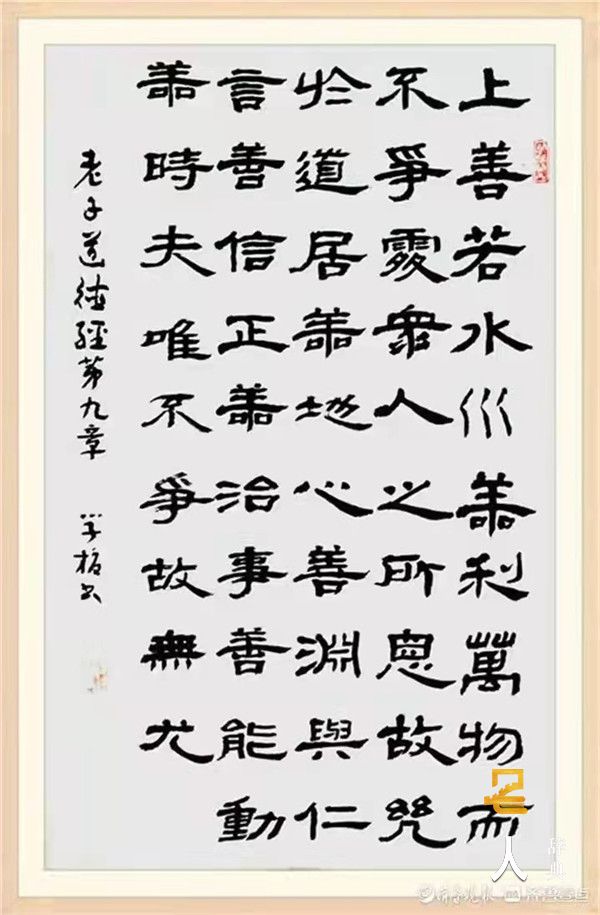 上善若水水善利萬物而
不爭處衆人之所惡故幾
於道居善地心善淵與仁
言善信正善治事善能動
善時夫唯不爭故無尤
老子道德經第九章
人
辞典
齐鲁壹点